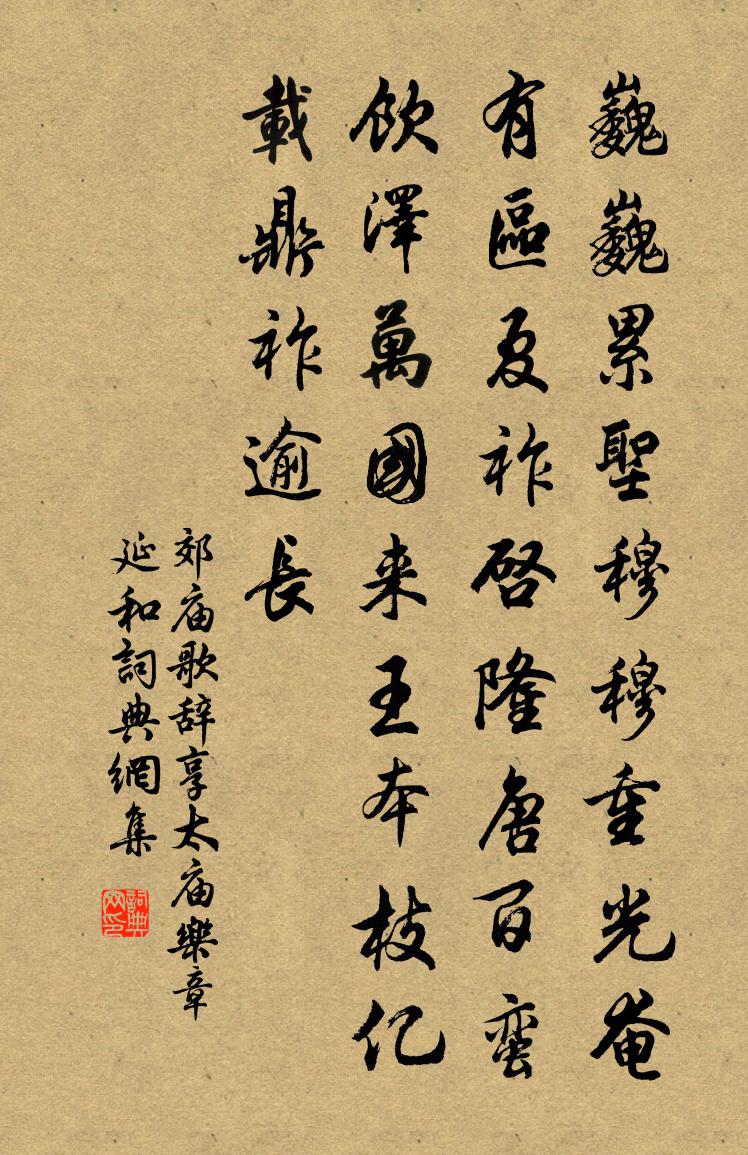 巍巍累聖穆穆重光奄
有區夏祚啓隆唐百蛮
飲澤萬國来王本枝亿
載鼎祚逾長
郊庙歌辞享太庙樂章
延和詞典網集
詞典网印